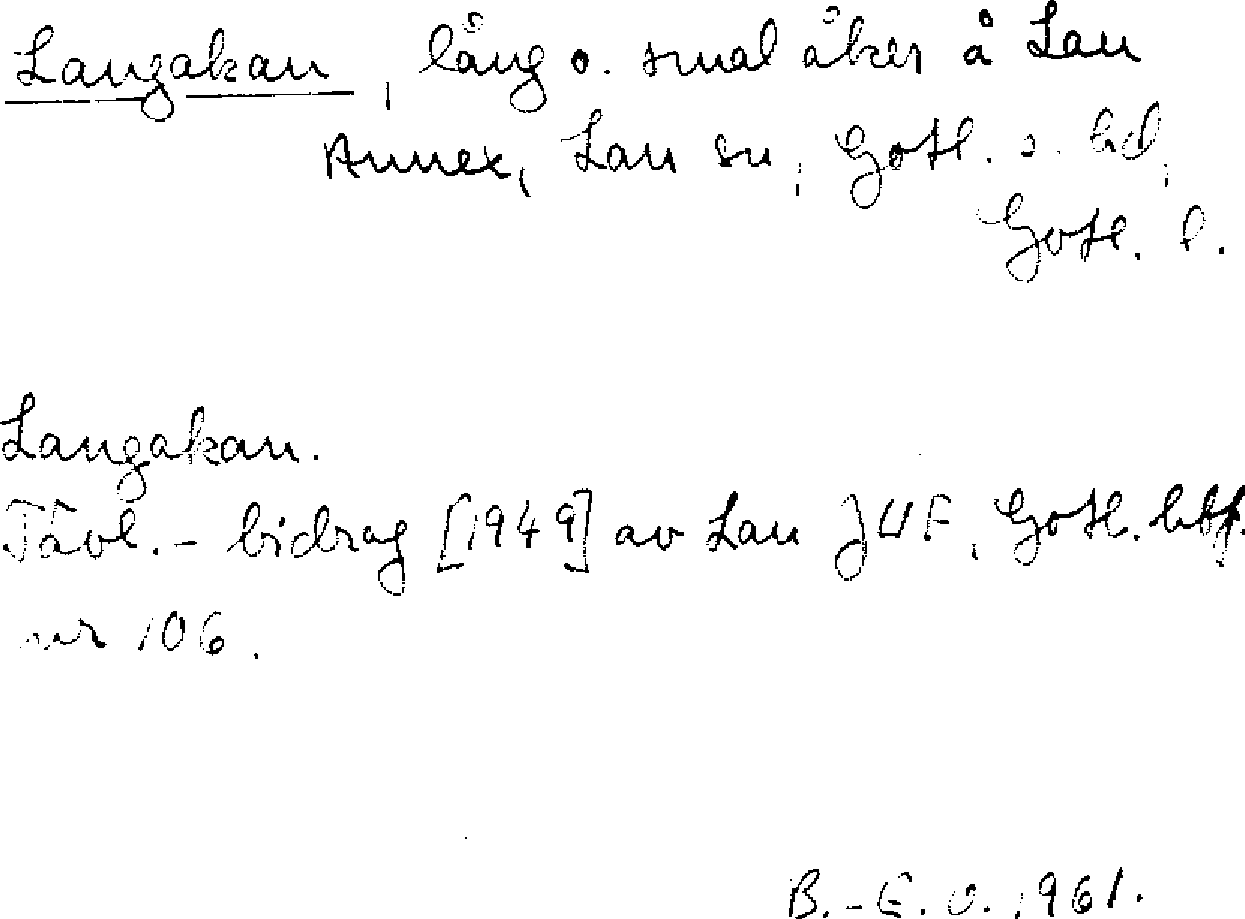 Langakan, lång o. smal åker å Lau
Annex, Lau sn, Gotl. s. hd,
Gotl. l.
Langakan.
Tävl.- bidrag [1949] av Lau JUF, Gotl. hbf.
nr 106.
B.-E. O. 1961.